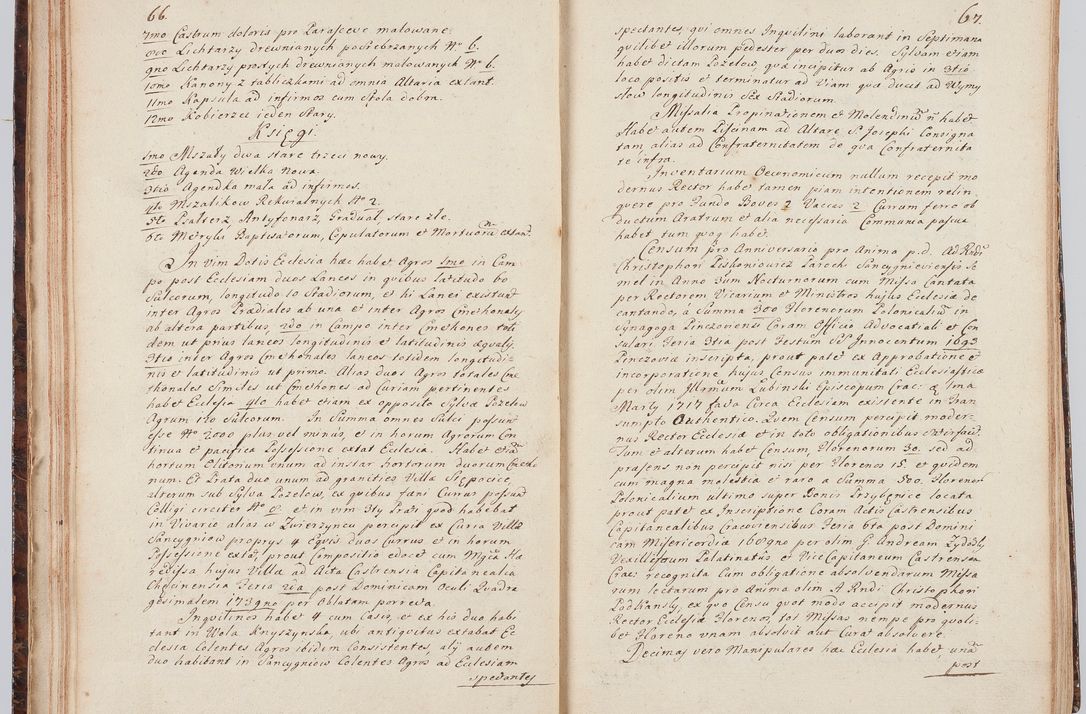 66.
7mo Castrum doloris pro Parasceve malowane.
8vo Lichtarzy drewnianych posrebrzanych No 6.
9no Lichtarzy prostych drewnianych malowanych No 6.
10mo Kanony z tabliczkami ad omnia Altaria extant.
11mo Kapsula ad infirmos cum Stola dobra.
12mo Kobierzec ieden Stary.
Księgi.
1mo Mszały dwa stare trzeci nowy.
2do Agenda Wielka Nowa.
3tio Agendka mała ad infirmos.
4to Mszalikow Rekwialnych No 2.
5to Psałterz, Antyfonarz, Graduał stare złe.
6to Metryki Baptisatorum, Copulatorum et Mortuorum extant
In Vim Dotis Ecclesia hæc habet Agros 1mo in Cam-
po post Ecclesiam duos Laneos in quibus latitudo 60
Sulcorum, longitudo 10 Stadiorum, et hi Lanei existunt
inter Agros Prædiales ab una et inter Agros Cmethonales
ab altera partibus, 2do in Campo inter Cmethones toti
dem ut prius laneos longitudinis et latitudinis æqualis.
3tio inter Agros Cmethonales laneos totidem longitudi-
nis et latitudinis ut primo. Alias duos Agros totales Cme
thonales Similes ut Cmethones ad Curiam pertinentes
habet Ecclesia 4to habet etiam ex opposito Sylvæ Pozelow
Agrum 120 Sulcorum. In Summa omnes Sulci possunt
esse No 2000 plus vel minus, et in horum Agrorum Con
tinua et pacifica Possessione extat Ecclesia. Habet etiam
hortum Olitorum unum ad instar hortorum duorum Cmetho
num. Et Prata duo unum ad granicies Villæ Stępocice,
alterum sub Sylva Pozelow, ex quibus fæni Currus possunt
Colligi circiter No 8 et in vim 3ty Prati quod habebat
in Vivario alias w Zwierzyncu percipit ex Curia Villæ
Sancygniow proprys 4 Equis duos Currus et in horum
Possessione extat, prout Compositio edocet cum Mgca Hæ
redissa hujus Villæ ad Acta Castrensia Capitanealia
Chęcinensia Feria 2da post Dominicam Oculi Quadra
gesimalem 1739no per Oblatam porrecta.
Inquilinos habet 4 cum Casis, et ex his duo habi
tant in Wola Knyszynska, ubi antiquitus extabat Ec
clesia Colentes Agros ibidem Consistentes, alij autem
duo habitant in Sancygniow Colentes Agros ad Ecclesiam
spectantes
67.
spectantes, qui omnes Inquilini laborant in Septimana
quilibet illorum pedester per duos dies. Sylvam etiam
habet dictam Pozelow, quæ incipitur ab Agris in 3tio
loco positis et terminatur ad Viam quæ ducit ad Wymy
słow longitudinis Sex Stadiorum.
Missalia Propinationem et Molendinum non habet
Habet autem Piscinam ad Altare S. Josephi Consigna
tam alias ad Confraternitatem de qua Confraternita
te infra.
Inventarium Oeconomicum nullum recepit mo
dernus Rector habet tamen piam intentionem relin
quere pro Fundo Boves 2 Vaccas 2 Currum ferro ob
ductum Aratrum et alia necessaria Communia pascua
habet tum quoque habet.
Censum pro Anniversario pro Anima p. d. Ad Rndi
Christophori Piskoniowicz Parochi Sancygnieviensis Se
mel in Anno 3um Nocturnorum cum Missa Cantata
per Rectorem Vicarium et Ministros hujus Ecclesiæ de
cantando, á Summa 300 Florenorum Polonicalium in
Synagoga Pinczoviensi Coram Officio Advocatiali et Con
sulari, Feria 3tia post Festum SS. Innocentum 1693
Pinczoviæ inscripta, prout patet ex Approbatione et
incorporatione hujus Census immunitati Ecclesiasticæ
per olim Illrmum Lubinski Episcopum Crac: d 1ma
Marty 1717 data Circa Ecclesiam existente in Tran
sumpto Authentico. Quem Censum percipit moder-
nus Rector Ecclesiæ et in toto obligationibus Satisfacit.
Tum et alterum habet Censum, Florenorum 30. sed ad
præsens non percipit nisi per Florenos 15 et quidem
cum magna molestia et raro a Summa 500. Florenor
Polonicalium ultimo super Bonis Przybenice locata
prout patet ex Inscriptione Coram Actis Castrensibus
Capitanealibus Cracoviensibus Feria 6ta post Domini
cam Misericordia 1689no per olim G. Andream Zydosly
Vexilliferum Palatinatus et Vice Capitaneum Castrensem
Crac: recognita Cum obligatione absolvendarum Missa
rum lectarum pro Anima olim A. Rndi Christophori
Podhansky, ex quo Censu quot modo accipit modernus
Rector Ecclesiæ Florenos, tot Missas nempe pro quoli-
bet Floreno unam absolvit aut Curat absolvere.
Decimas vero Manipulares hæc Ecclesia habet unam
post